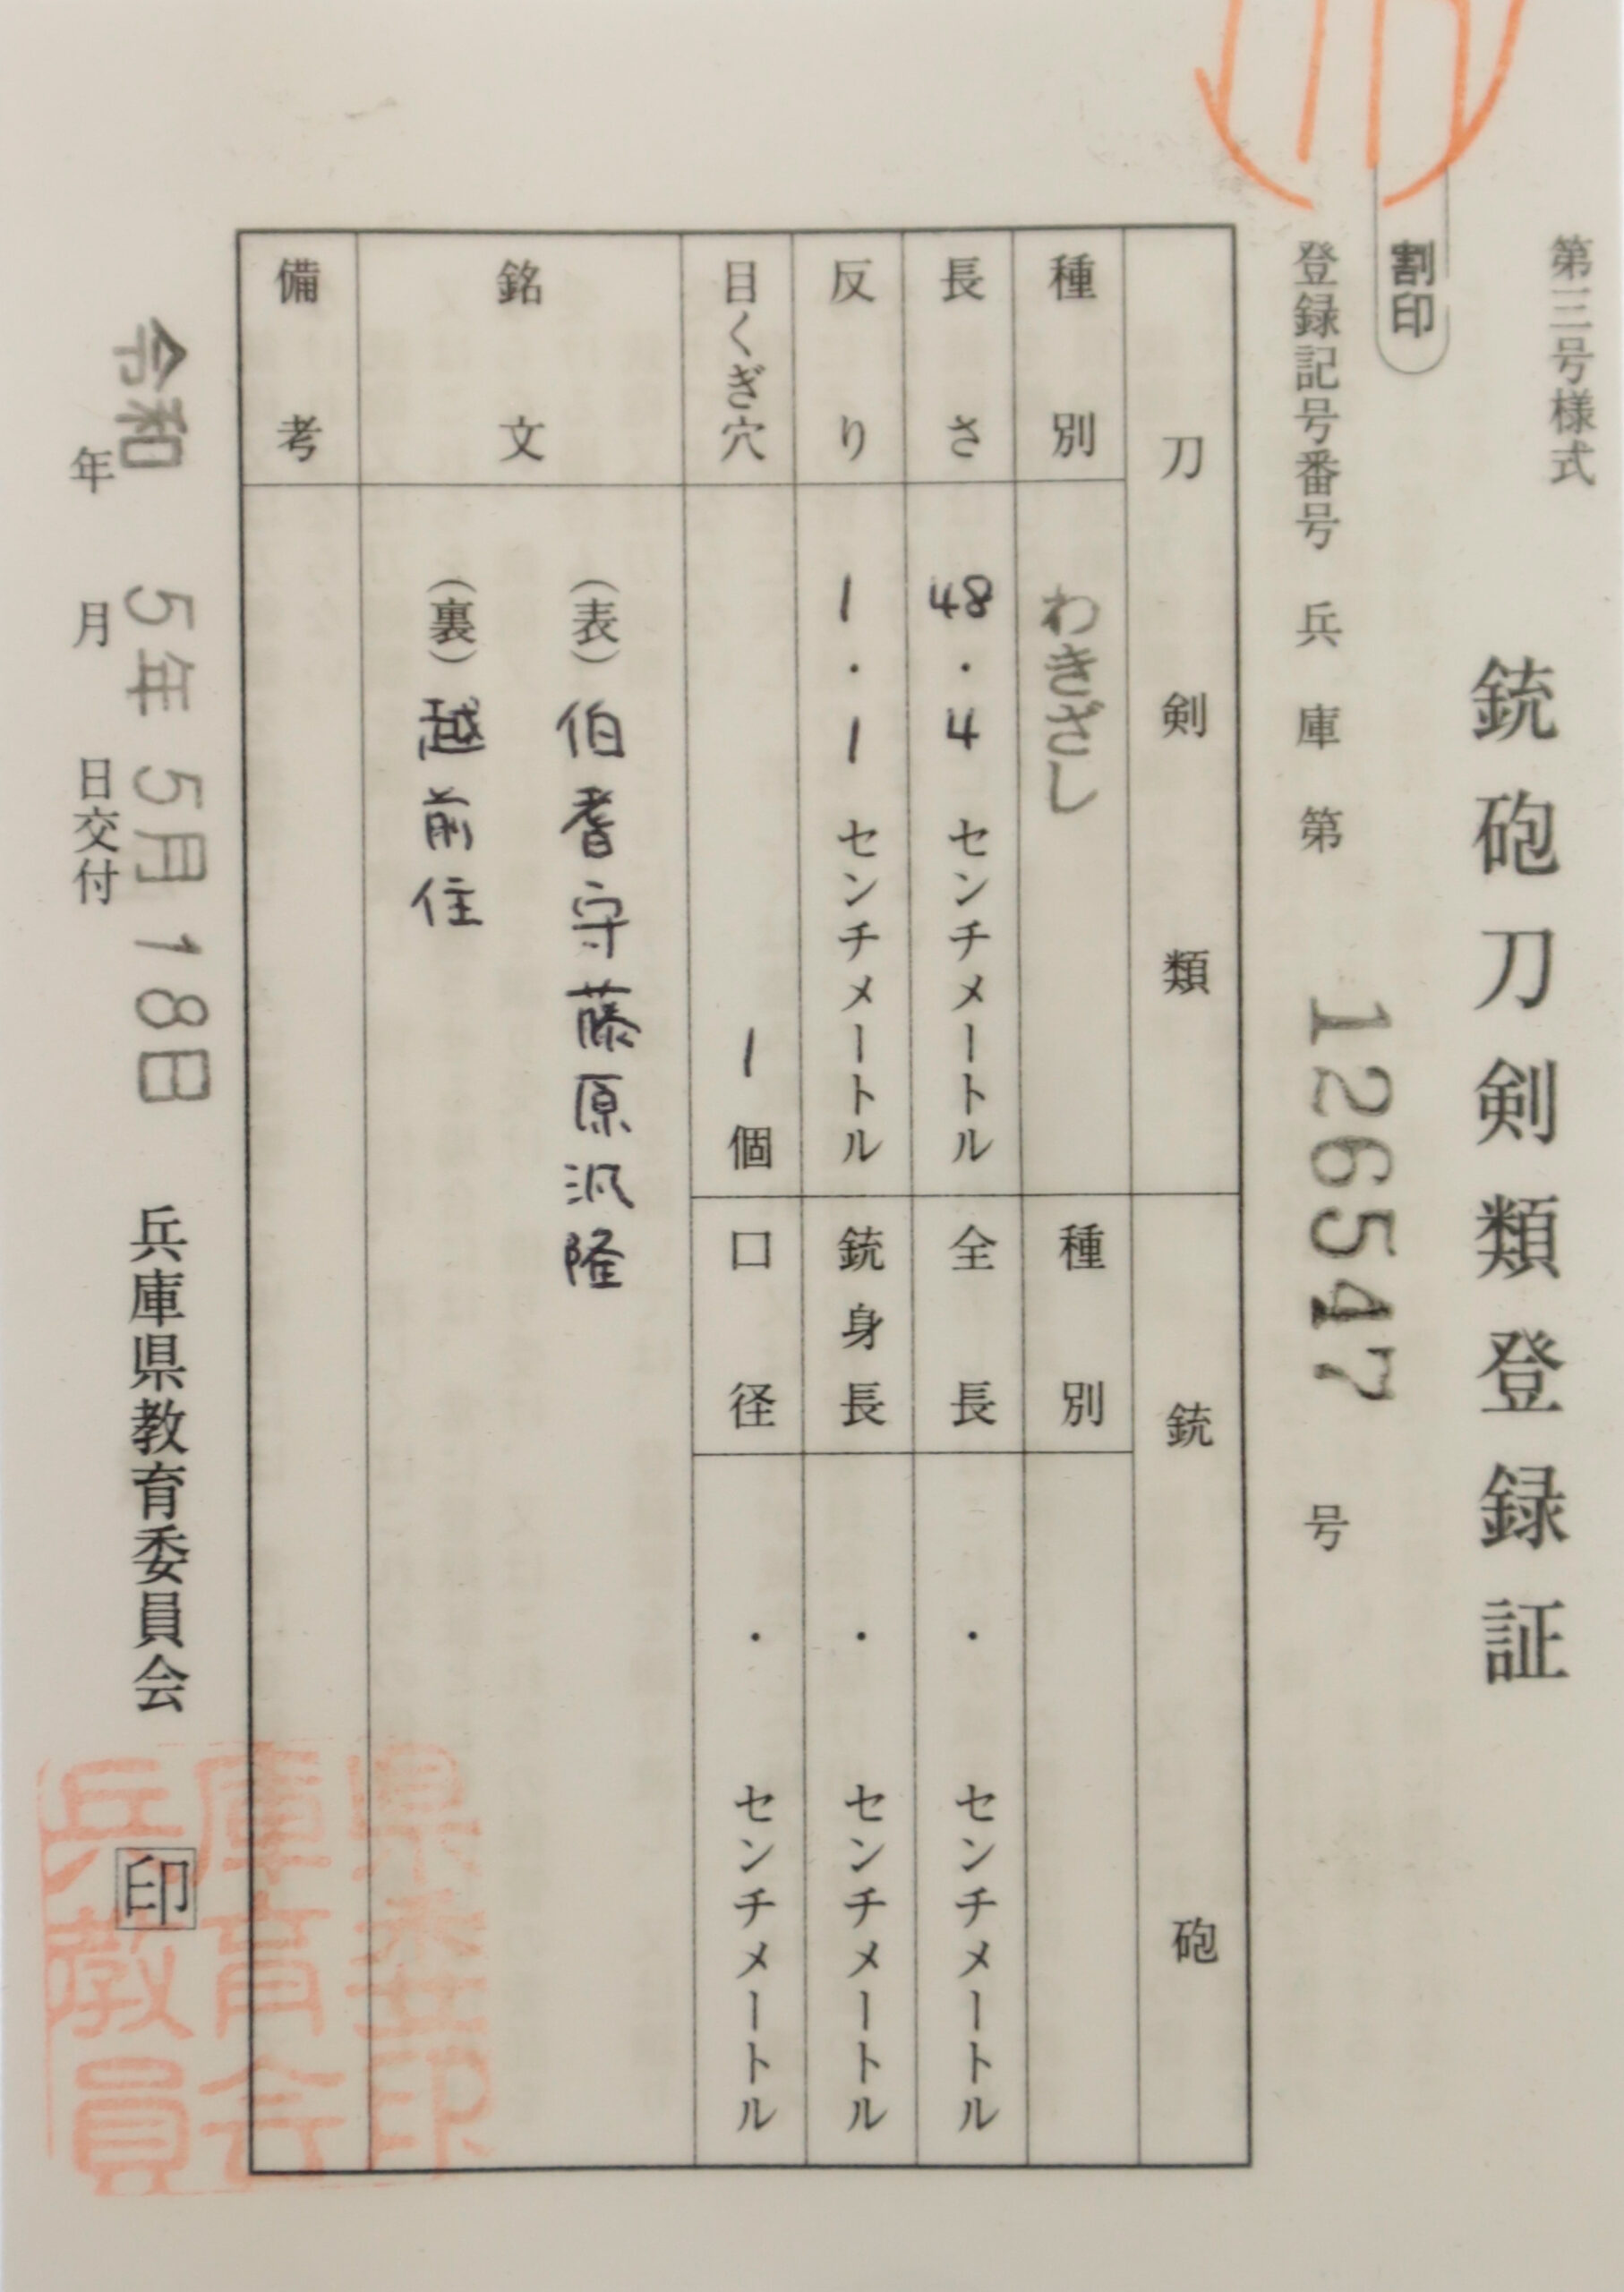 第三号様式
銃砲刀剣類登録証
割印
登録記号番号 兵庫第 126547 号
刀剣類
銃砲
種別 わきざし
種別
長さ 48.4 センチメートル
全長 ・ センチメートル
反り 1.1 センチメートル
銃身長 ・ センチメートル
目くぎ穴 1個
口径 ・ センチメートル
銘文
(表)伯耆守藤原汎隆
(裏)越前住
備考
令和 5年 5月18日
年 月 日交付
兵庫県教育委員会 印
兵庫県教育委員会印